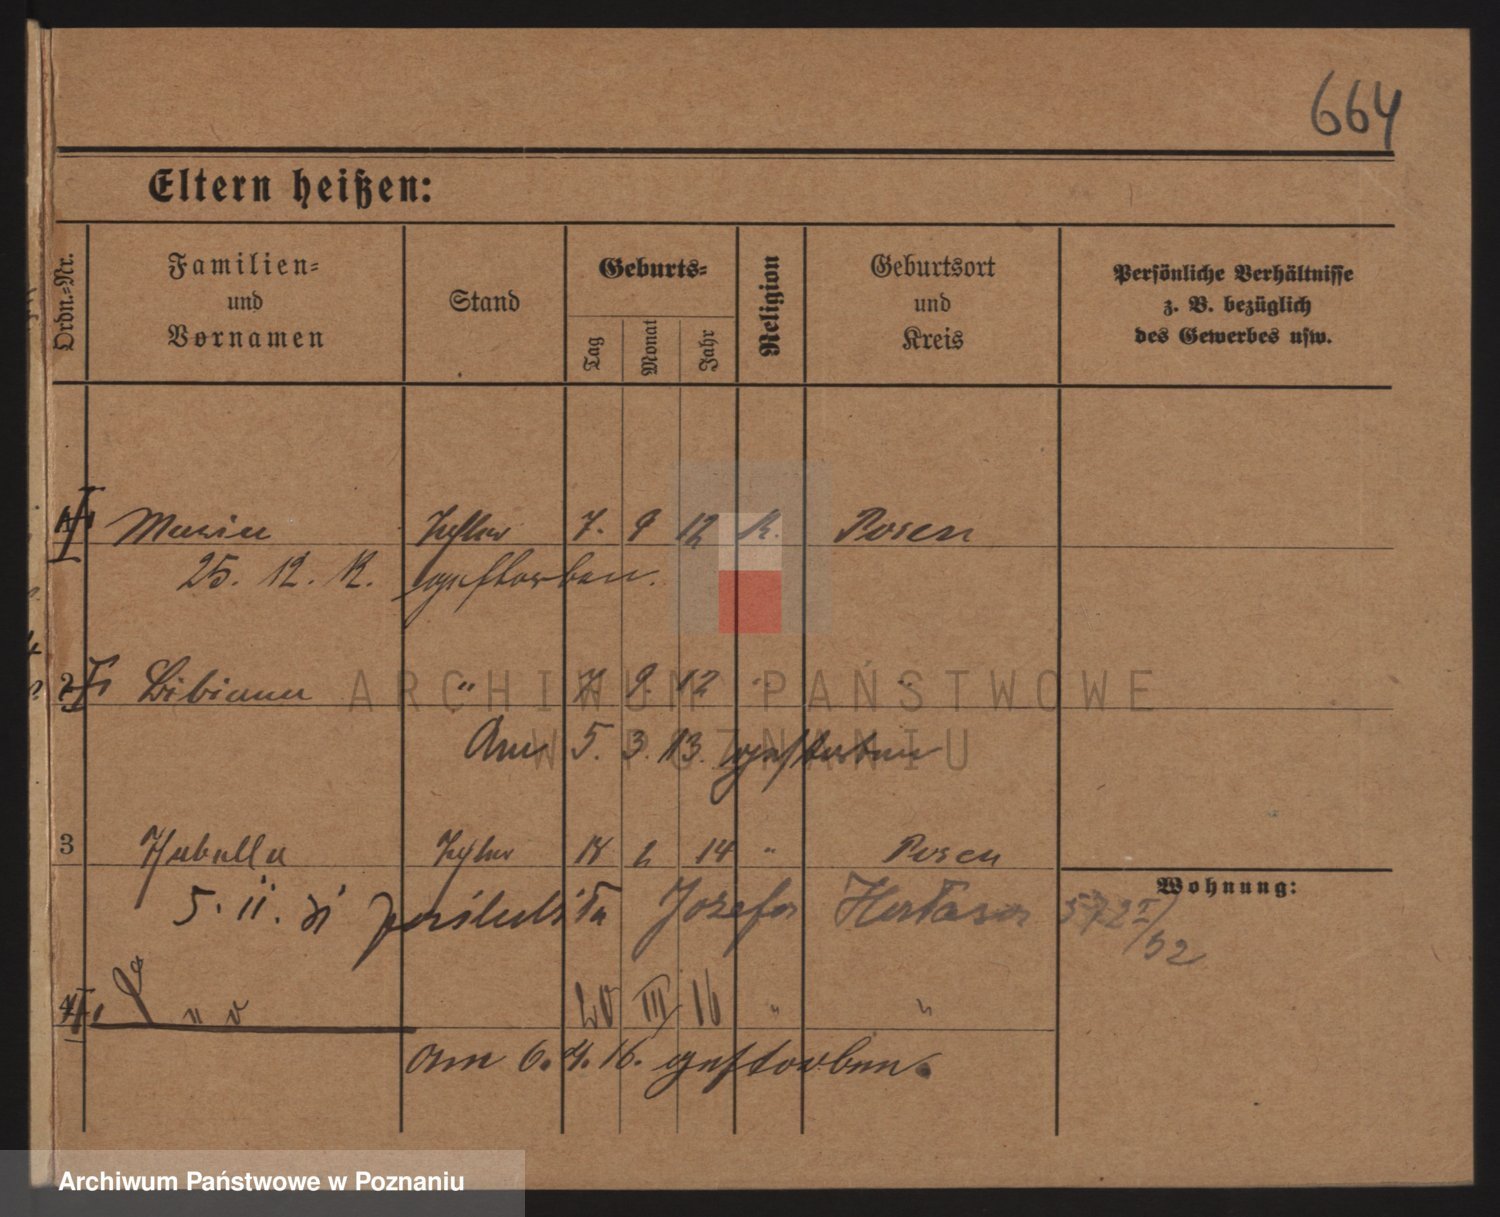 664
Eltern heißen:
Ordn.-Nr.
Familien-
und
Vornamen
Stand
Geburts-
Tag
Monat
Jahr
Religion
Geburtsort
und
Kreis
Persönliche Verhältnisse
z. B. bezüglich
des Gewerbes usw.
1 Maria 7. 9 12 K. Posen
25. 12. 12. gestorben.
2 Bibianna " 7 9. 12 " "
Am 5. 3. 13. gestorben
3 Isabella 18 14 " Posen
Wohnung:
5. II. 31 poślubiła Józefa
4 20 III 16 " "
am 6. 4. 16. gestorben.
ARCHIWUM PAŃSTWOWE
W POZNANIU
Archiwum Państwowe w Poznaniu